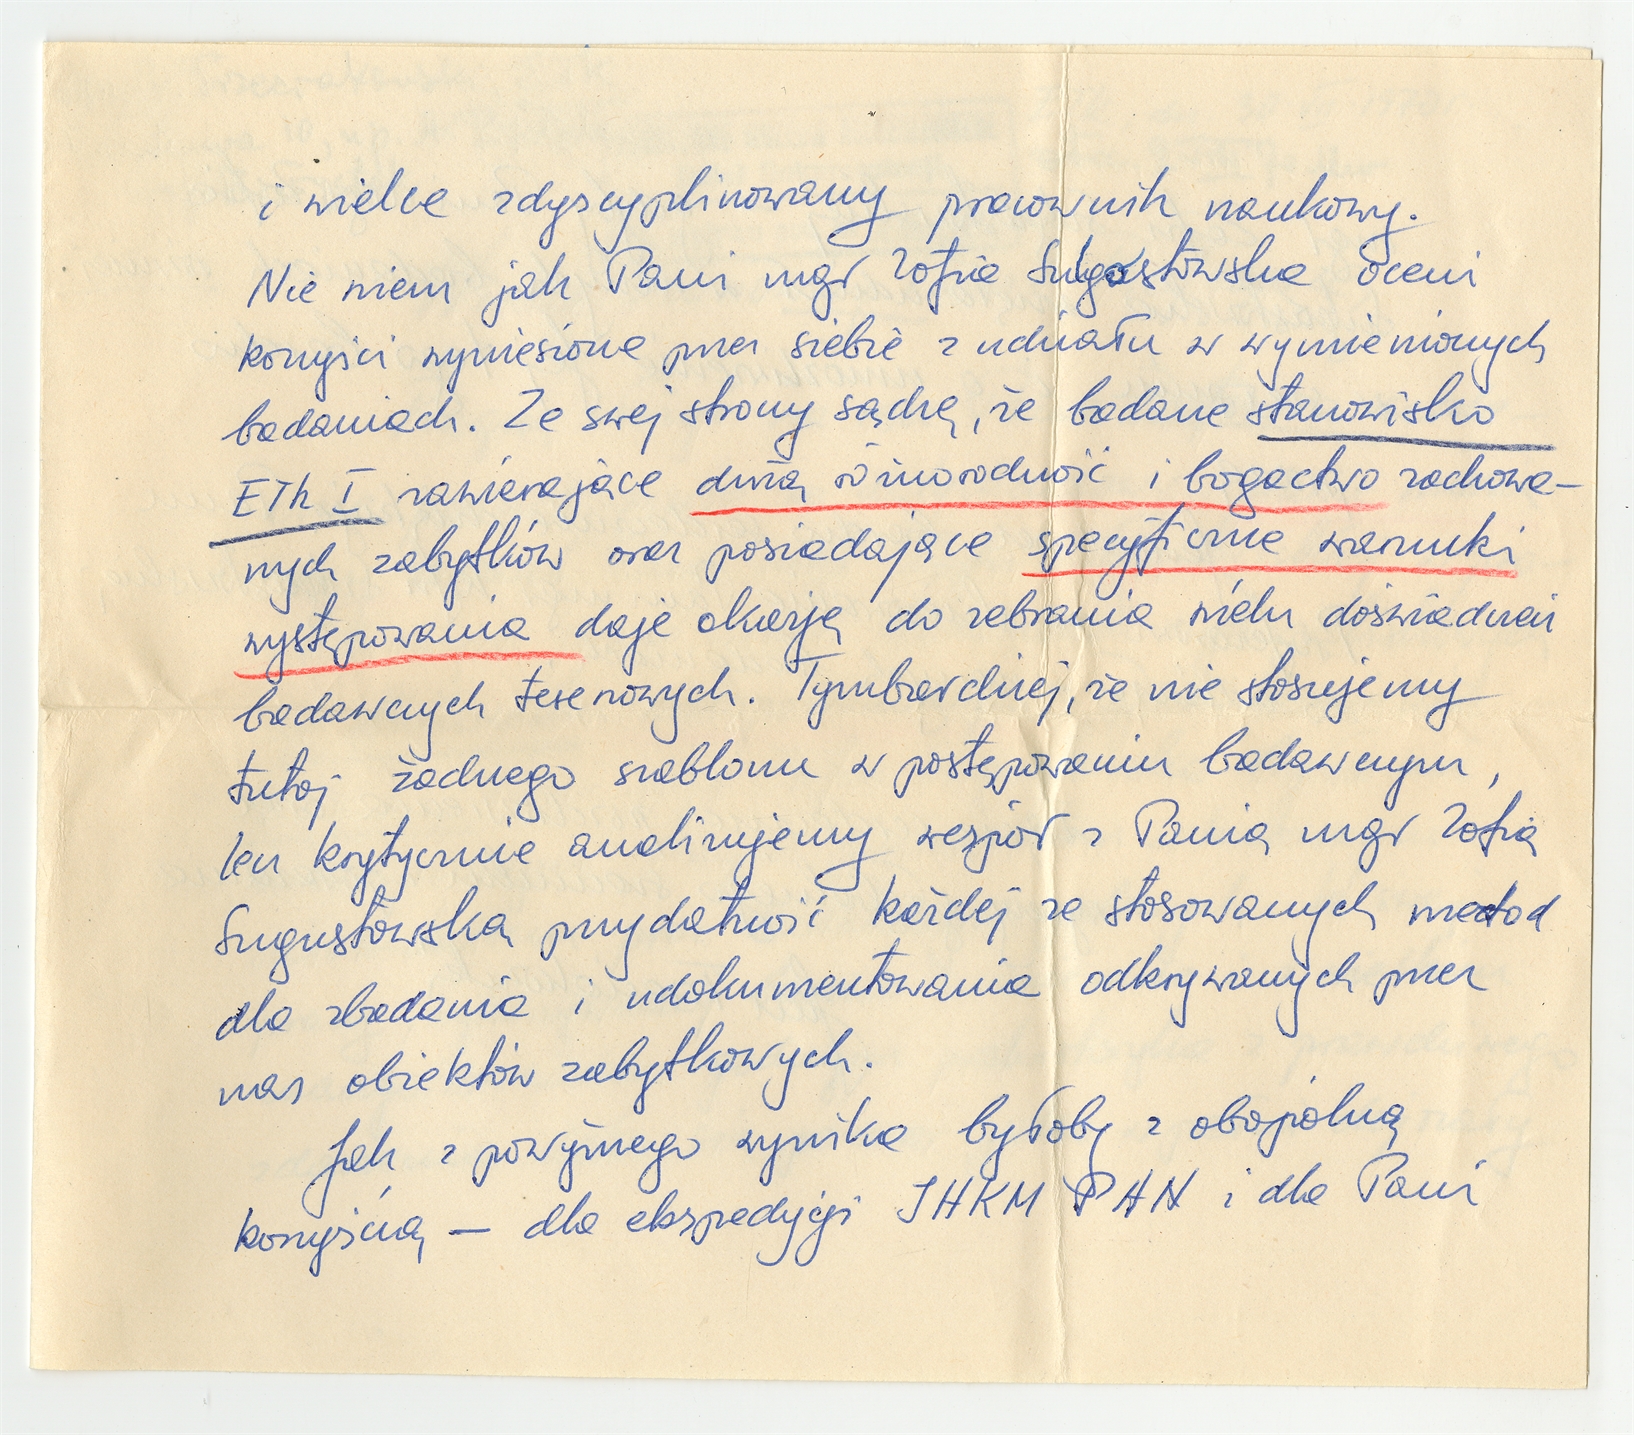 i wielce zdyscyplinowany pracownik naukowy.
Nie wiem jak Pani mgr Zofia Sulgostowska oceni
korzyści wyniesione przez siebie z udziału w wymienionych
badaniach. Ze swej strony sądzę, że badane stanowisko
ETh I zawierające dużą różnorodność i bogactwo zachowa-
nych zabytków oraz posiadające specyficzne warunki
występowania daje okazję do zebrania wielu doświadczeń
badawczych terenowych. Tymbardziej, że nie stosujemy
tutaj żadnego szablonu w postępowaniu badawczym,
lecz krytycznie analizujemy wespół z Panią mgr Zofią
Sugustowską przydatność każdej ze stosowanych metod
dla zbadania i udokumentowania odkrywanych przez
nas obiektów zabytkowych.
Jak z powyższego wynika byłoby z obopólną
korzyścią — dla ekspedycji IHKM PAN i dla Pani